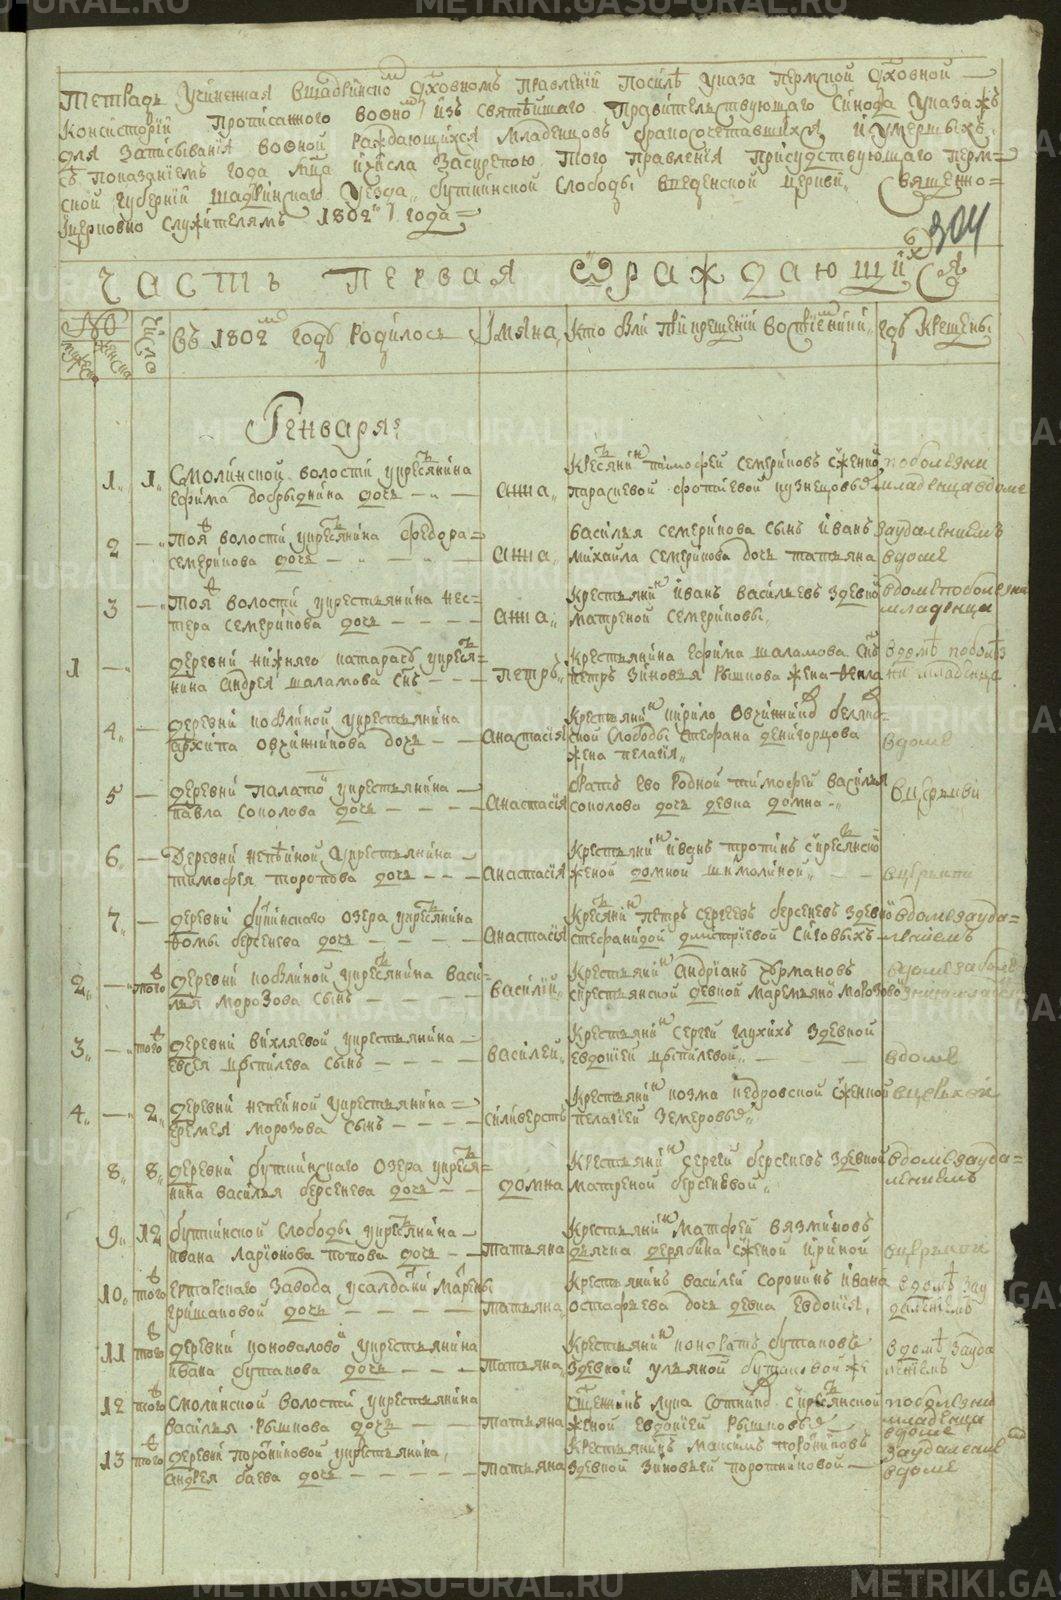 METRIKI.GASO-URAL.RU
Тетрадь учиненная в Шадринско Духовномъ правленiи посилѣ указа Пермской Духовной
Консисторiи прописанного воономъ изъ Святѣйшаго Правительствующаго Синода указахъ
для записыванiя воэной раждающихся младенцовъ бракосочетавшихся и умершыхъ
съ показанiемъ года мца и числа заскрепою того правленiя присудствующаго Перм=
ской губернiи Шадринскаго уезда, Буткинской слободы Введенской церкви, Священно=
церковно служителямъ 1802 года=
304
Часть первая О раждающихся
№ Число Въ 1802м годѣ родилосъ Имяна Кто были при крещенiи воспрiемники Гдѣ крещены
Генваря
1 1 Смолинской волости у крестьянина
Ефима Добрыднина дочь Анна
Крестьянинъ Тимофей Семериковъ с женой
Параскевой Фотiевой Кузнецовы
по болезни
младенца вдоме
2 Тоя волости у крестьянина Федора
Семерикова дочь Анна
Василья Семерикова сынъ Иванъ
Михаила Семерикова дочь Татьяна
за удалениемъ
вдоме
3 Тоя волости у крестьянина Нес=
тера Семерикова дочь Анна
Крестьянин Иванъ Васильевъ з девкой
Матреной Семериковы
вдоме по болезни
младенца
1 Деревни Нижняго Катарасъ у кресья=
нина Андрея Шаламова снъ Петръ
Крестьянина Ефима Шаламова снъ
Петръ Зиновья Рышкова жена Фекла
в домѣ по болѣз
ни младенца
4 Деревни Кокшиной у крестьянина
Архипа Овчинникова дочь Анастасiя
Крестьянин Кирило Овчинников
ской слободы Стефана
жена Пелагiя
вдоме
5 Деревни Палатой у крестьянина
Павла Соколова дочь Анастасiя
братъ ево родной Тимофей Василья
Соколова дочь девка Домна
в церькви
6 Деревни Непѣиной у крестьянина
Тимофея Торопова дочь Анастасiя
Крестьянин Иванъ Тропинъ с кресьянской
женой Домной Шимолиной
вцеркви
7 Деревни Буткинскаго озера у кресьянина
Фомы Берсенева дочь Анастасiя
Кресьянин Петръ Сергеевъ Берсеневъ з девко
Стефанидой Дмитрiевой Сиговыхъ
вдоме за уда=
лениемъ
2 того Деревни Кокшиной у кресьянина Васи=
лья Морозова сынъ Василий
Крестьянин Андрiанъ
с крестьянской девкой Маремьяной Морозово
вдоме
3 того Деревни Вихляевой у крестьянина
Евсея Цыпилева сынъ Василей
Крестьянин Сергей Глухихъ з девкой
Евдокiей Цыпилевой
вдоме
4 2 Деревни Непеиной у крестьянина
Еремея Морозова сынъ Силиверстъ
Крестьянин Козма Кедровской с женой
Пелагiей Земеровы
вцерькви
8 8 Деревни Буткинскаго озера у кресья=
нина Василья Берсенева дочь Домна
Крестьянин Сергей Берсеневъ з девкой
Матреной Берсеневой
вдоме за уда=
лениемъ
9 12 Буткинской слободы у кресьянина
Ивана Ларiонова Попова дочь Татьяна
Крестьянин Матфей Вязмикъ
дьячка Дерябина с женой Ириной
вцеркви
10 того Ертарскаго завода у салдатки Марины
Гришановой дочь Татьяна
Крестьянинъ Василей Сорокинъ Ивана
Остафьева дочь девка Евдокiя
в домѣ за у
далениемъ
11 того Деревни Коновалово у крестьянина
Ивана Бутакова дочь Татьяна
Крестьянин Кондратъ Бутаковъ
з девкой Ульяной Бутаковой же
в домѣ за уда
лениемъ
12 того Смолинской волости у крестьянина
Василья Рышкова дочь Татьяна
Сщенникъ Лука Сотниковъ с кресьянской
женой Евдокiей Рышковы
по болезни
младенца
вдоме
13 того Деревни Поротниковой у крестьянина
Андрея Баева дочь Татьяна
Крестьянинъ Максимъ Поротниковъ
з девкой Зиновьей Поротниковой
за удалениемъ
вдоме
METRIKI.GASO-URAL.RU